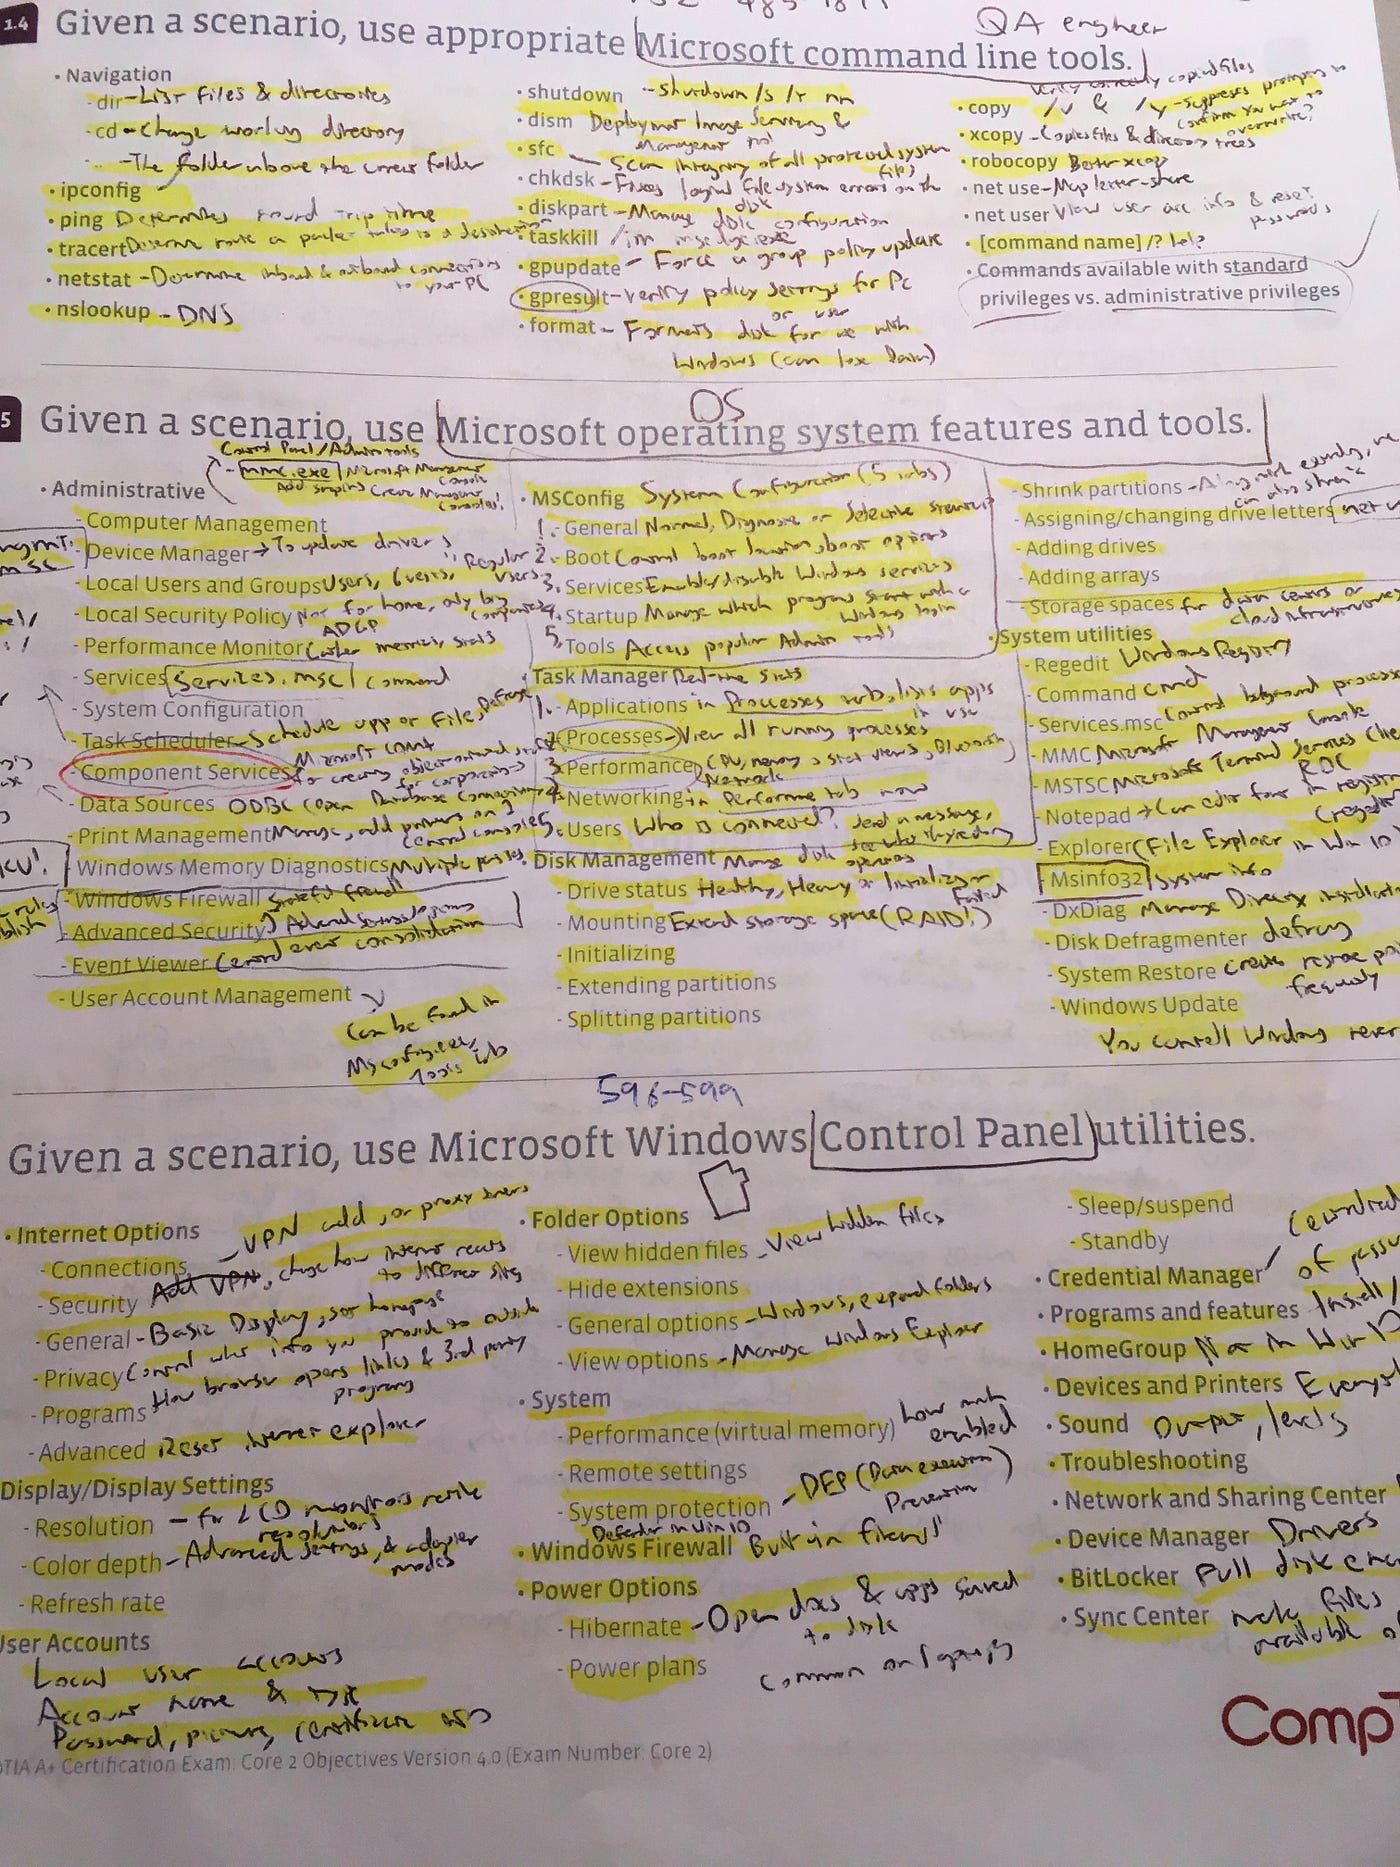 QA engineer
1.4 Given a scenario, use appropriate Microsoft command line tools.
• Navigation
- dir - List files & directories
- cd - Change working directory
- .. - The folder above the current folder
• ipconfig
• ping Determines round trip time
• tracert Determine route a packet takes to a destination
• netstat - Determine inbound & outbound connections
to your PC
• nslookup - DNS
• shutdown - shutdown /s /r nn
• dism Deployment Image Servicing &
Management tool
• sfc - Scan integrity of all protected system
files
• chkdsk - Fixes logical file system errors on the
disk
• diskpart - Manage disk configuration
• taskkill /im msedge.exe
• gpupdate - Force a group policy update
• gpresult - verify policy settings for PC
or user
• format - Formats disk for use with
Windows (can lose Data)
verify correctly copied files
• copy /v & /y - suppresses prompting to
confirm you want to
overwrite?
• xcopy - Copies files & directory trees
• robocopy Better xcopy
• net use - Map letter - share
• net user View user acc info & reset
passwords
• [command name] /? help
• Commands available with standard
privileges vs. administrative privileges
5 Given a scenario, use Microsoft operating system features and tools.
OS
Control Panel/Admin tools
- mmc.exe / Microsoft Management
Console
Add snapins Create Management
Consoles!
• Administrative
- Computer Management
- Device Manager → To update drivers
- Local Users and Groups Users, Guests, "Regular
Users"
- Local Security Policy Not for home, only big
companies
- Performance Monitor Gather metrics, stats
- Services Services.msc command
- System Configuration
- Task Scheduler - Schedule app or file, Defrag
- Component Services Microsoft COM+
- Data Sources ODBC (Open Database Connectivity
- Print Management Manage, add printers on 1
central console
- Windows Memory Diagnostics Multiple passes
- Windows Firewall Stateful firewall
- Advanced Security
- Event Viewer Central event consolidation
- User Account Management
Can be found in
Msconfig.exe,
Tools tab
• MSConfig System Configuration (5 tabs)
1. - General Normal, Diagnostic or Selective startup
2. - Boot Control boot location, boot options
3. - Services Enable/disable Windows services
4. - Startup Manage which programs start with a
Windows login
5. - Tools Access popular Admin tools
• Task Manager Real-time stats
1. - Applications in Processes tab, lists apps
in use
2. - Processes - View all running processes
3. - Performance CPU, memory
Network
4. - Networking in Performance tab now
5. - Users Who is connected? Send a message,
• Disk Management Manage disk
operations
- Drive status Healthy,
- Mounting Extend storage space (RAID!)
- Initializing
- Extending partitions
- Splitting partitions
- Shrink partitions
- Assigning/changing drive letters net
- Adding drives
- Adding arrays
- Storage spaces for data centers or
cloud infrastructures
• System utilities
- Regedit Windows Registry
- Command cmd
- Services.msc Control background processes
- MMC Microsoft Management Console
- MSTSC Microsoft Terminal Services Clie
RDC
- Notepad → Can edit
- Explorer (File Explorer in Win 10
- Msinfo32 System info
- DxDiag Manage DirectX installation
- Disk Defragmenter defrag
- System Restore Creates restore
frequently
- Windows Update
596-599
Given a scenario, use Microsoft Windows Control Panel utilities.
• Internet Options
- Connections - VPN add, or proxy
- Security Add VPN, change how internet reacts
to different sites
- General - Basic Display, set homepage
- Privacy Control what info you provide to outside
- Programs How browser opens links & 3rd party
programs
- Advanced Reset internet explorer
Display/Display Settings
- Resolution - For LCD monitors native
resolution
- Color depth - Advanced settings, & adapter
modes
- Refresh rate
User Accounts
Local user accounts
Account name & type
Password, picture, certificate info
• Folder Options
- View hidden files - View hidden files
- Hide extensions
- General options - Windows, expand folders
- View options - Manage Windows Explorer
• System
- Performance (virtual memory)
- Remote settings
- System protection - DEP (Data execution
Prevention)
Defender in Win 10
• Windows Firewall Built in firewall
• Power Options
- Hibernate - Open docs & apps saved
to disk
- Power plans Common on laptops
- Sleep/suspend
- Standby
• Credential Manager Centralized
of passw
• Programs and features Install/
• HomeGroup Not in Win 10
• Devices and Printers Everyt
• Sound Output, levels
• Troubleshooting
• Network and Sharing Center
• Device Manager Drivers
• BitLocker Full disk enc
• Sync Center make files
available
CompT
TIA A+ Certification Exam: Core 2 Objectives Version 4.0 (Exam Number: Core 2)